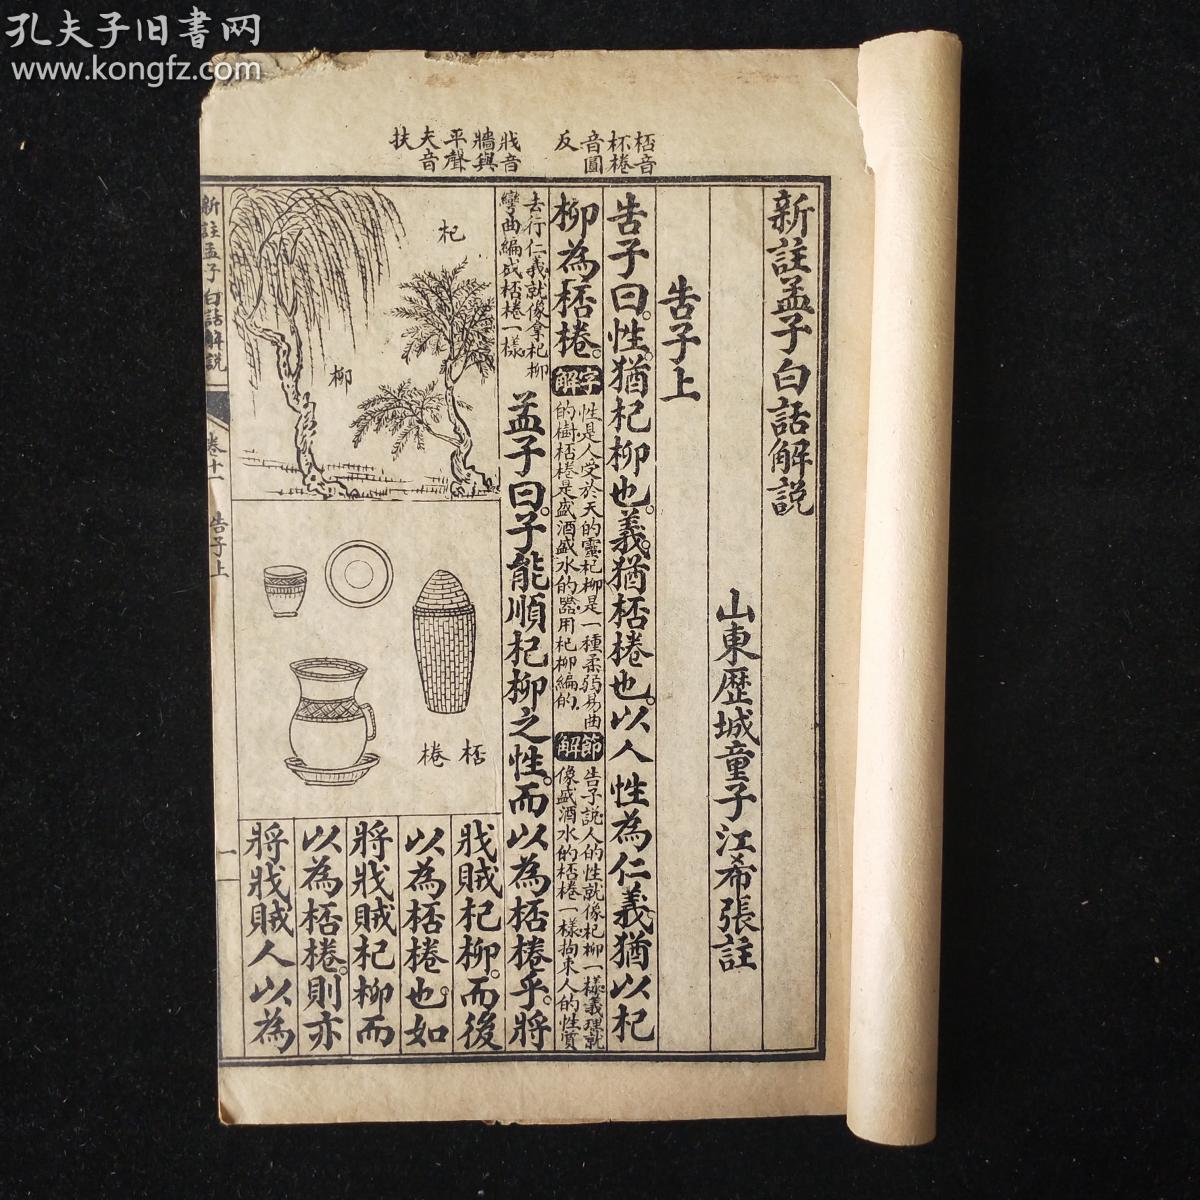 孔夫子旧书网
www.kongfz.com
桮音
杯棬
音圓
反
戕音
牆與
平聲
夫音
扶
新註孟子白話解説
山東歷城童子江希張註
告子上
告子曰。性。猶杞柳也。義。猶桮棬也。以人性為仁義。猶以杞
柳為桮棬。
字解
性是人受於天的靈杞柳是一種柔弱易曲
的樹桮棬是盛酒盛水的器用杞柳編的
節解
告子説人的性就像杞柳一樣義理就
像盛酒水的桮棬一樣拘束人的性質
去行仁義就像拿杞柳
彎曲編成桮棬一樣
孟子曰。子能順杞柳之性。而以為桮棬乎。將
戕賊杞柳。而後
以為桮棬也。如
將戕賊杞柳而
以為桮棬。則亦
將戕賊人以為
杞
柳
桮
棬
新註孟子白話解説
卷十一
告子上
一